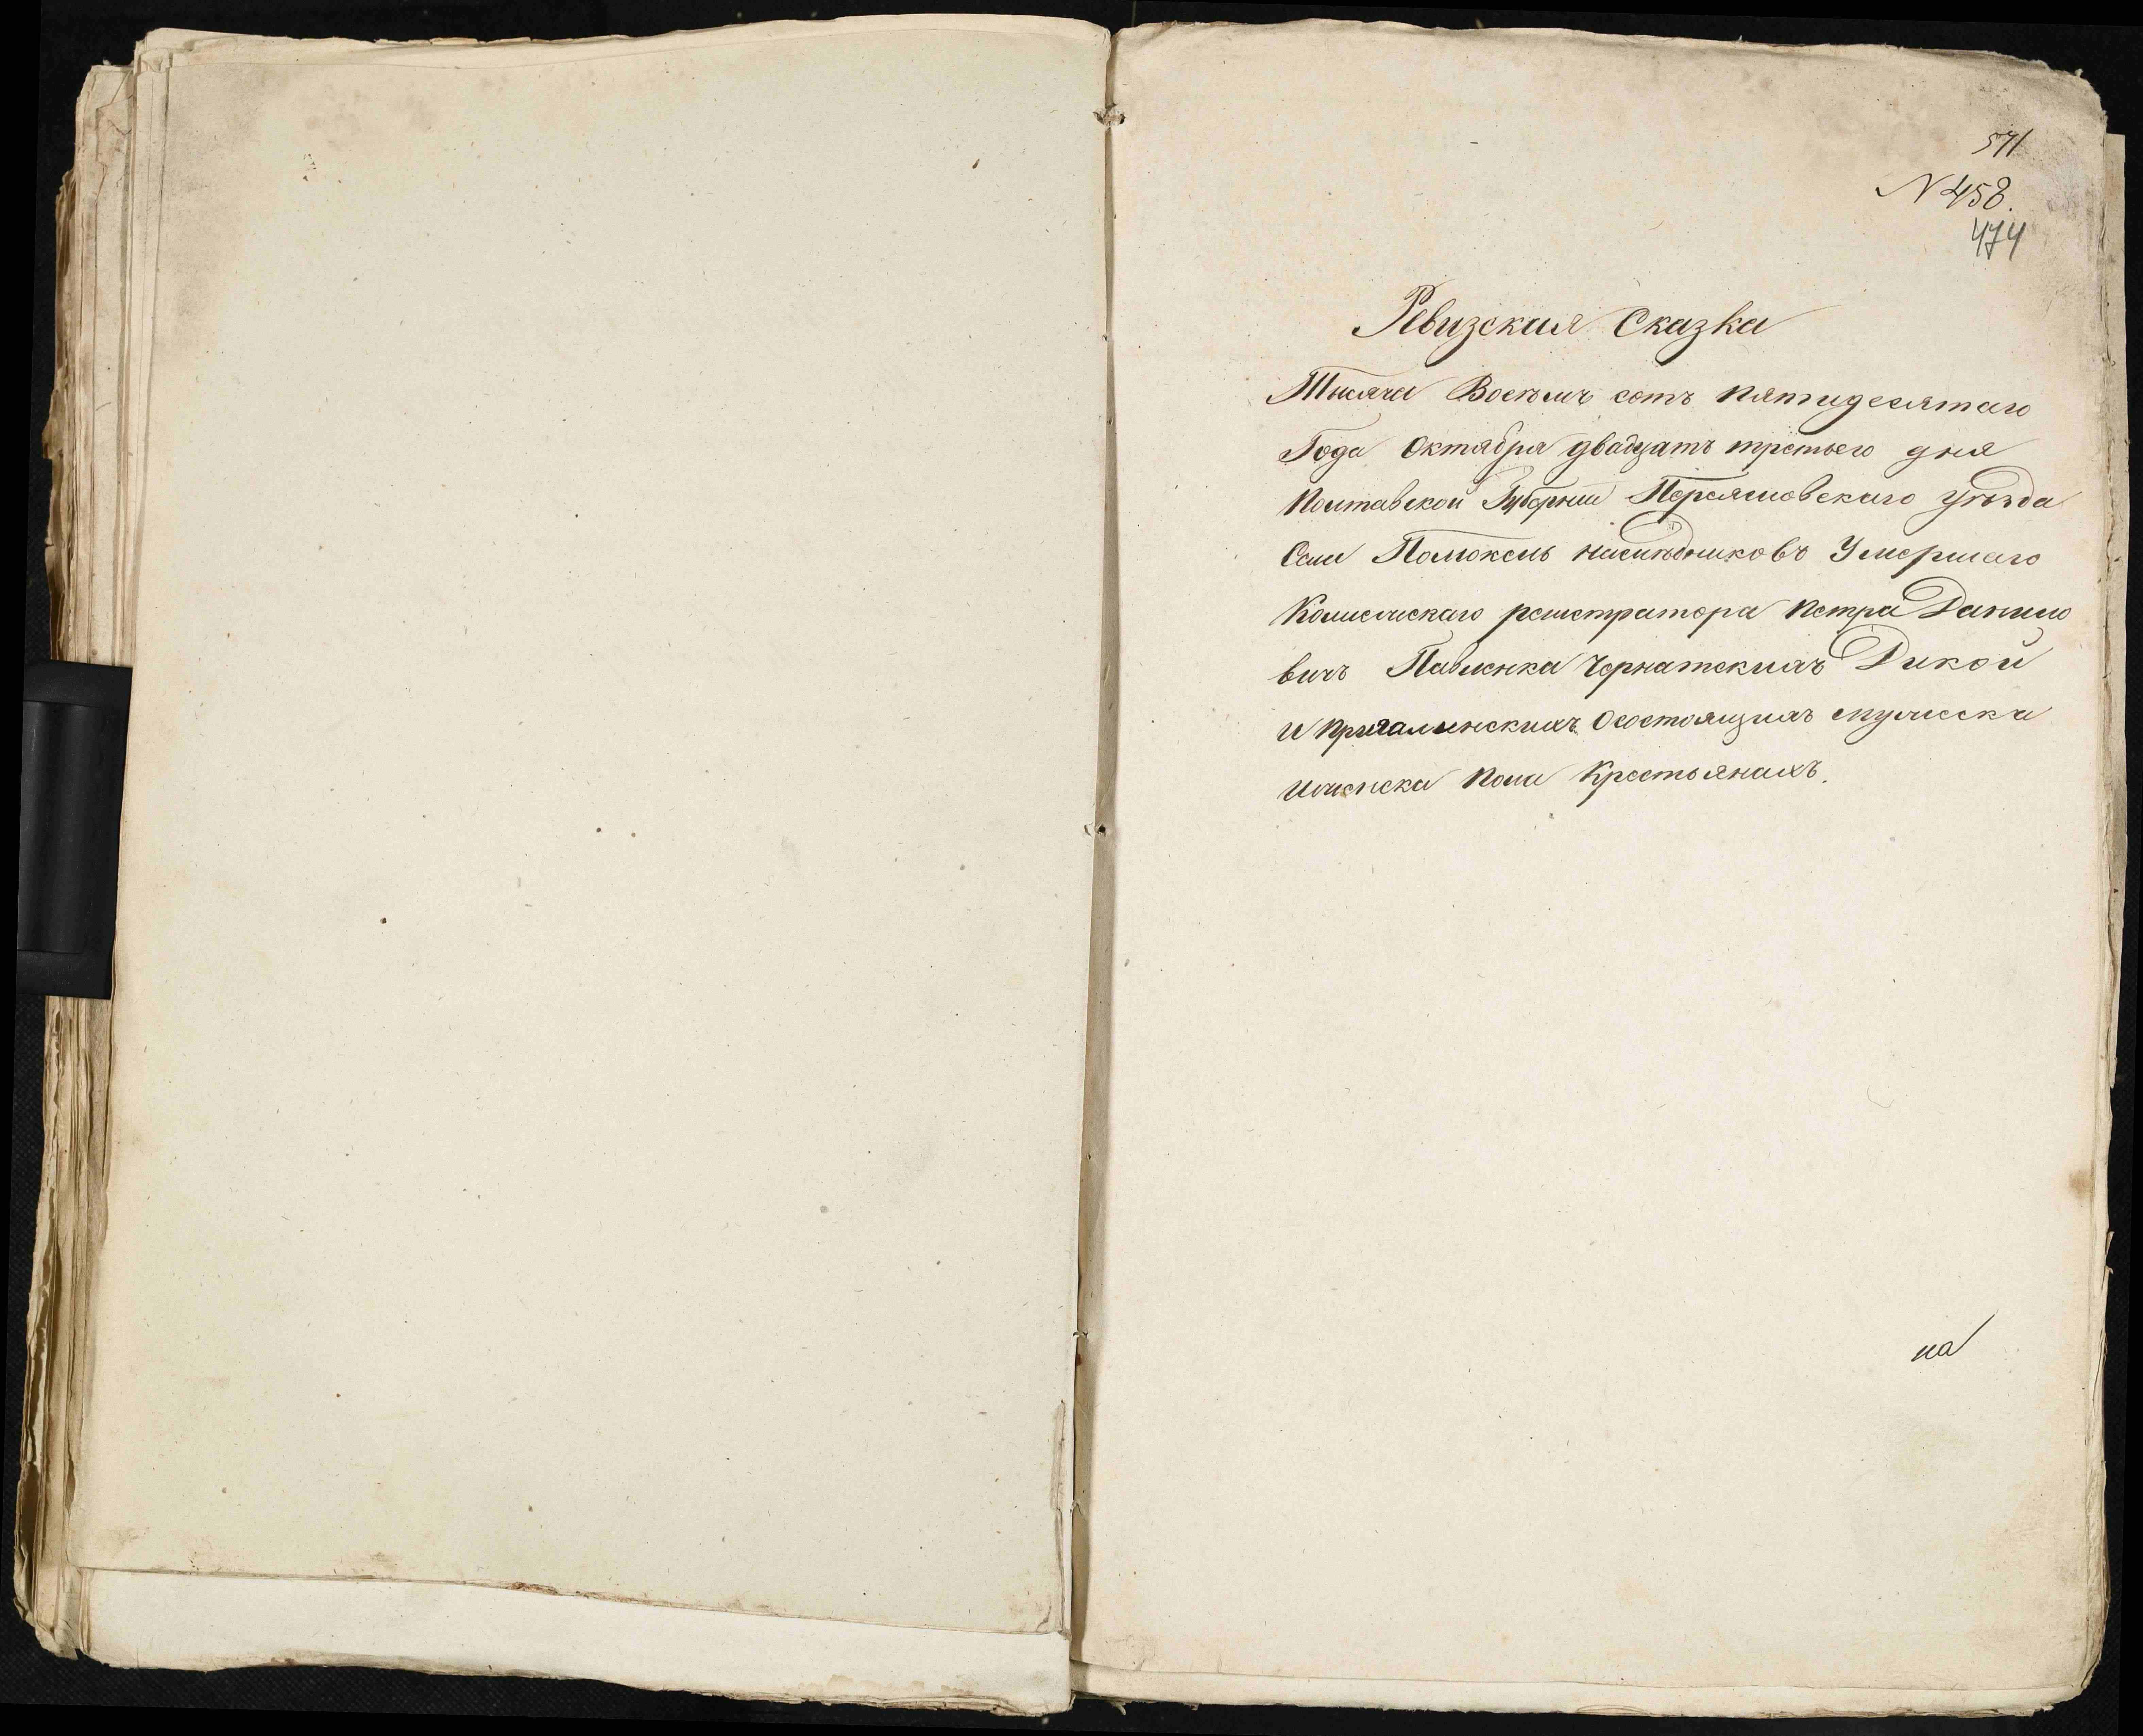 571
N 458.
474
Ревизская Сказка
Тысяча Восемь сотъ пятидесятаго
Года Октября двадцать третьего дня
Полтавской Губерніи Переяславскаго уѣзда
Села Положеь наслѣдниковъ Умершаго
Колежскаго регистратора Петра Данило
вичъ Павленка Чернатскихъ Дикой
и Пригалинскихъ Осостоящихъ мужеска
ииженска пола Крестьянахъ.
на